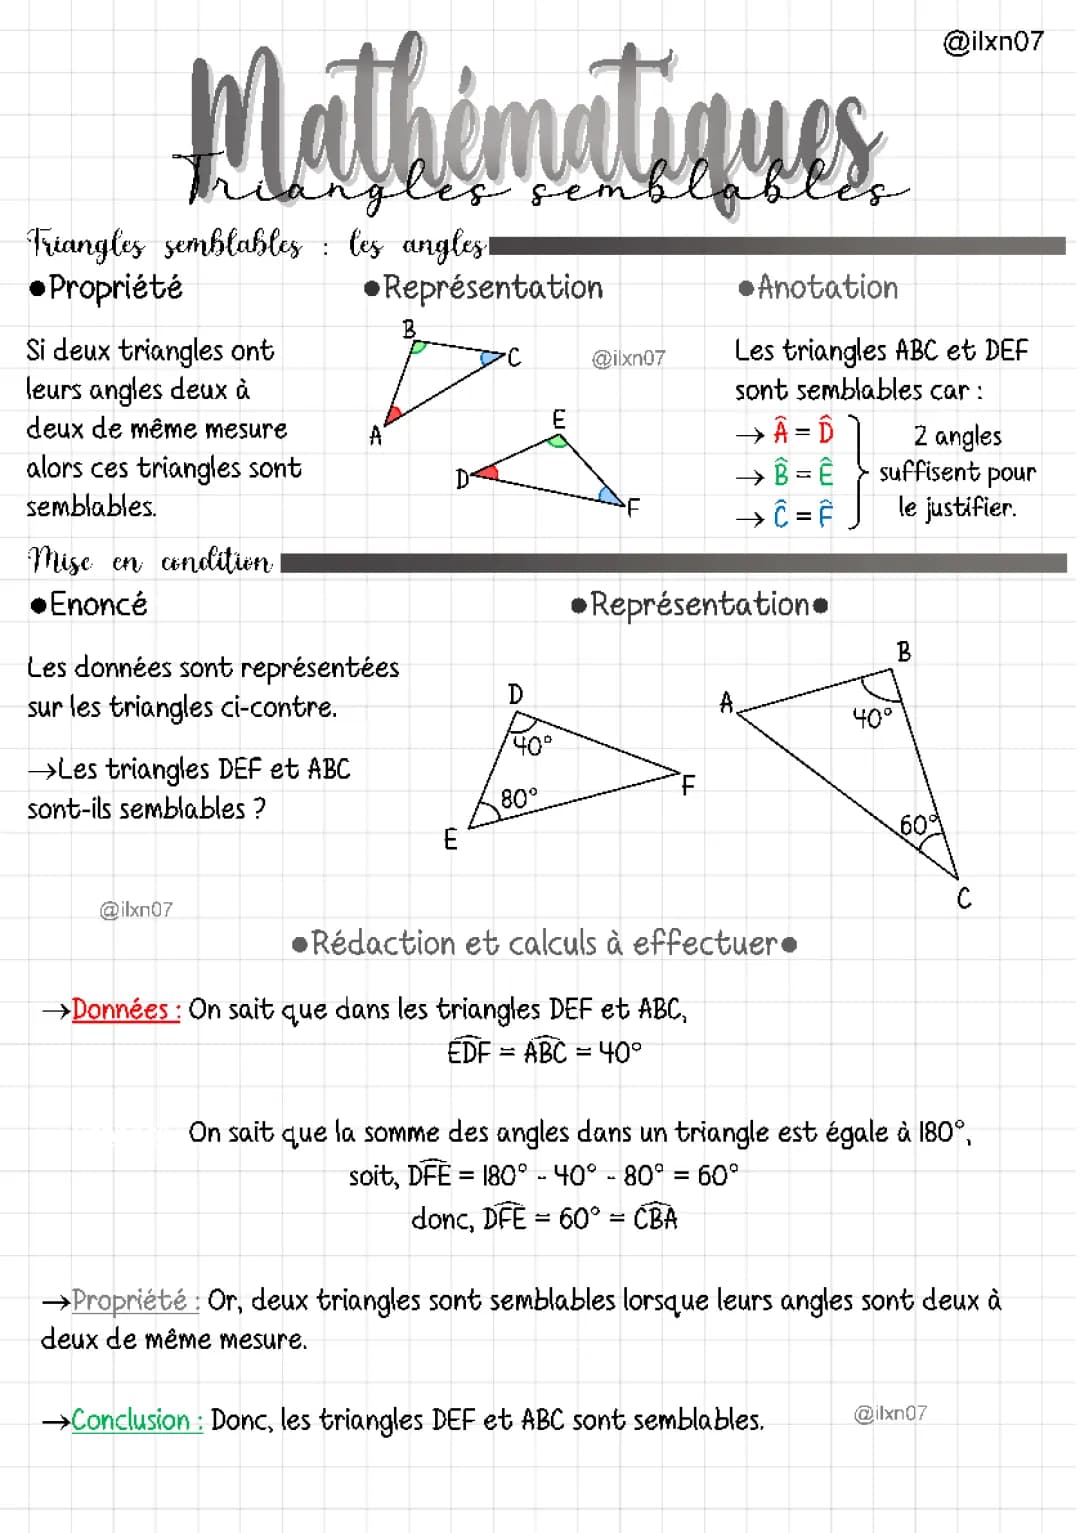 @ilxn07
Mathématiques
Triangles semblables
Triangles semblables : les angles
●Propriété
Si deux triangles ont
leurs angles deux à
deux de même mesure
alors ces triangles sont
semblables.
●Représentation
B
C
A
@ilxn07
E
D
F
●Anotation
Les triangles ABC et DEF
sont semblables car :
→ Â = D̂
→ B̂ = Ê
→ Ĉ = F̂
2 angles
suffisent pour
le justifier.
Mise en condition
●Enoncé
Les données sont représentées
sur les triangles ci-contre.
→Les triangles DEF et ABC
sont-ils semblables ?
@ilxn07
●Représentation●
D
40°
80°
E
F
B
A
40°
60°
C
●Rédaction et calculs à effectuer●
→Données : On sait que dans les triangles DEF et ABC,
E͡DF = A͡BC = 40°
On sait que la somme des angles dans un triangle est égale à 180°,
soit, D͡FE = 180° - 40° - 80° = 60°
donc, D͡FE = 60° = C͡BA
→Propriété : Or, deux triangles sont semblables lorsque leurs angles sont deux à
deux de même mesure.
→Conclusion : Donc, les triangles DEF et ABC sont semblables.
@ilxn07